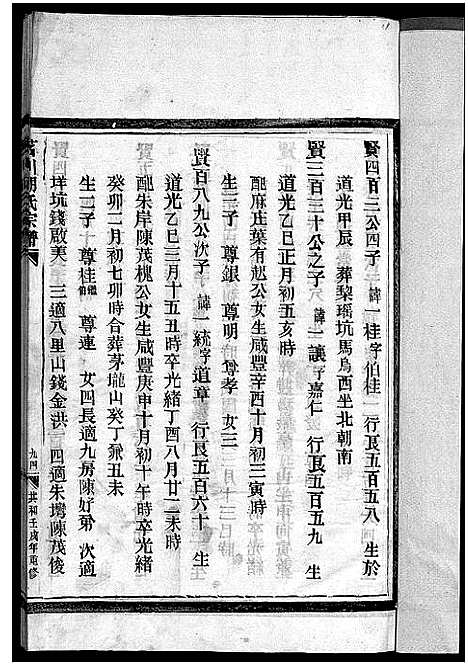 賢四百二公四子 諱一桂字伯桂 行良五百五八 生於
道光甲辰 葬黎瑶坑馬鳥西坐北朝南
賢三百三十公之子 諱一讓字嘉仁 行良五百五九 生
道光乙巳正月初五亥時
配麻庄葉有起公女生咸豐辛酉十月初三寅時
生三子 尊銀 尊明 尊孝 女三
賢百八九公次子 諱一統字道章 行良五百六十 生
道光乙巳三月十五丑時卒光緒丁酉八月廿二未時
配朱岸陳茂槐公女生咸豐庚申十月初十午時卒光緒
癸卯二月初七卯時合葬茅瓏山癸丁兼丑未
生二子 尊桂 尊連 女四長適九房陳好第 次適
垟坑錢啟美 三適八里山錢金洪 四適朱塆陳茂俊
川胡氏宗譜
九四 共和壬戌年重修